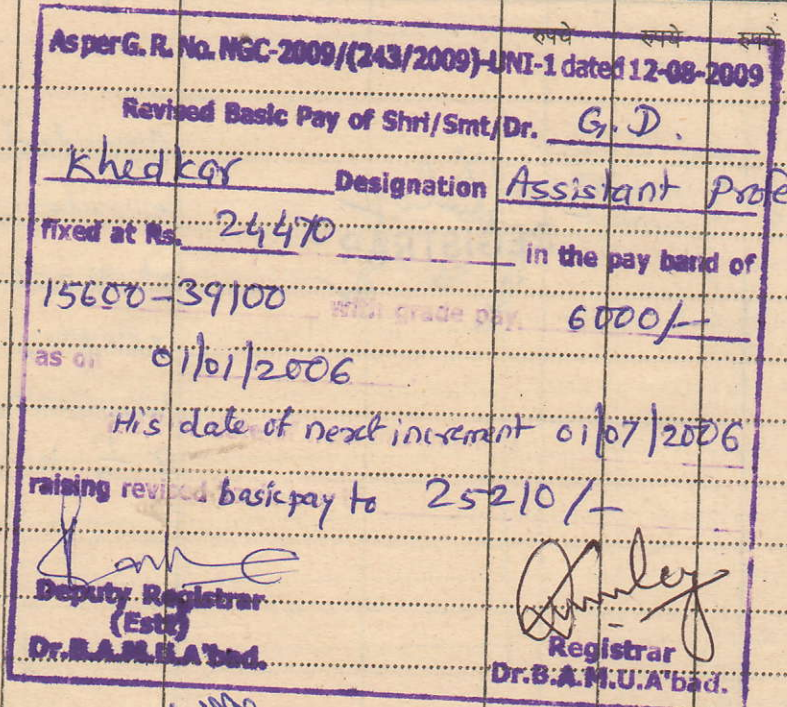 रुपये रुपये रुपये
As per G. R. No. NGC-2009/(243/2009)-UNI-1 dated 12-08-2009
Revised Basic Pay of Shri/Smt/Dr. G. D.
Khedkar Designation Assistant Profe
fixed at Rs. 24,470 in the pay band of
15600-39100 with grade pay 6000/-
as on 01/01/2006
His date of next increment 01/07/2006
raising revised basic pay to 25210/-
Deputy Registrar
(Estt)
Dr.B.A.M.U.A'bad.
Registrar
Dr.B.A.M.U.A'bad.